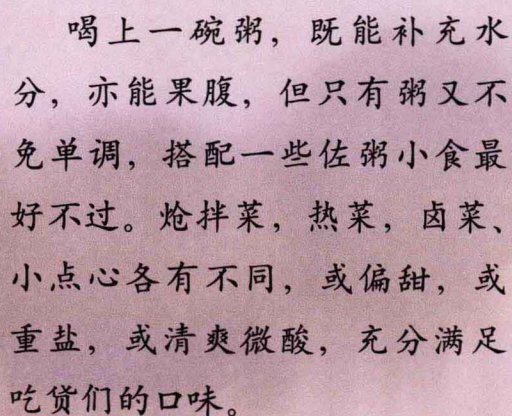 喝上一碗粥，既能补充水
分，亦能果腹，但只有粥又不
免单调，搭配一些佐粥小食最
好不过。炝拌菜，热菜，卤菜、
小点心各有不同，或偏甜，或
重盐，或清爽微酸，充分满足
吃货们的口味。